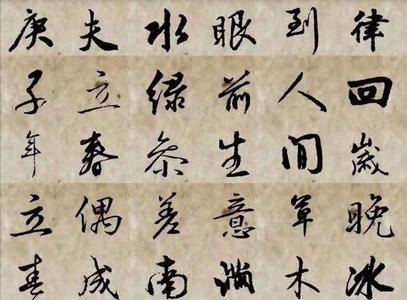 律回歲晚冰
到人间草木
眼前生意满
水绿参差南
夫立春偶成
庚子年立春